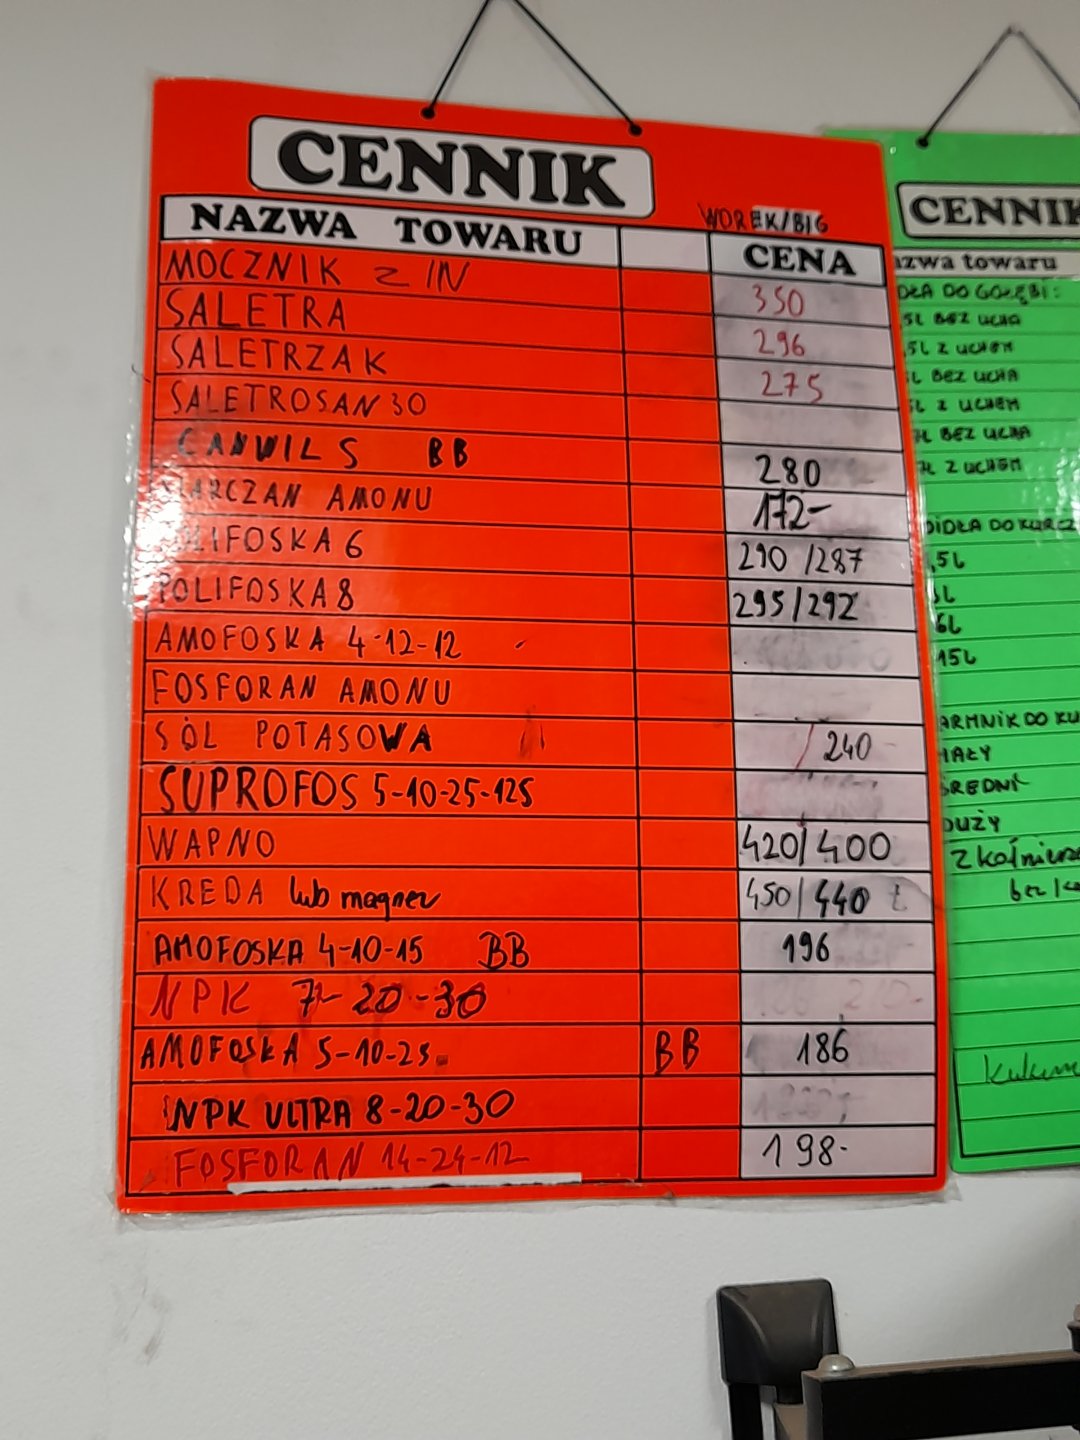 CENNIK
WOREK/BIG
NAZWA TOWARU CENA
MOCZNIK z IN 350
SALETRA 296
SALETRZAK 275
SALETROSAN 30
CANWIL S BB 280
MARCZAN AMONU 172-
POLIFOSKA 6 290 /287
POLIFOSKA 8 295/292
AMOFOSKA 4-12-12
FOSFORAN AMONU
SÓL POTASOWA / 240
SUPROFOS 5-10-25-125
WAPNO 420/400
KREDA lub magnez 450/440
AMOFOSKA 4-10-15 BB 196
NPK 7-20-30
AMOFOSKA 5-10-25 BB 186
NPK ULTRA 8-20-30
FOSFORAN 14-24-12 198-
CENNIK
azwa towaru
DŁA DO GOŁĘBI:
,5L BEZ UCHA
,5L Z UCHEM
L BEZ UCHA
L Z UCHEM
7L BEZ UCHA
7L Z UCHEM
DIDŁA DO KURCZ
,5L
L
6L
15L
ARMNIK DO KU
MAŁY
ŚREDNI
DUŻY